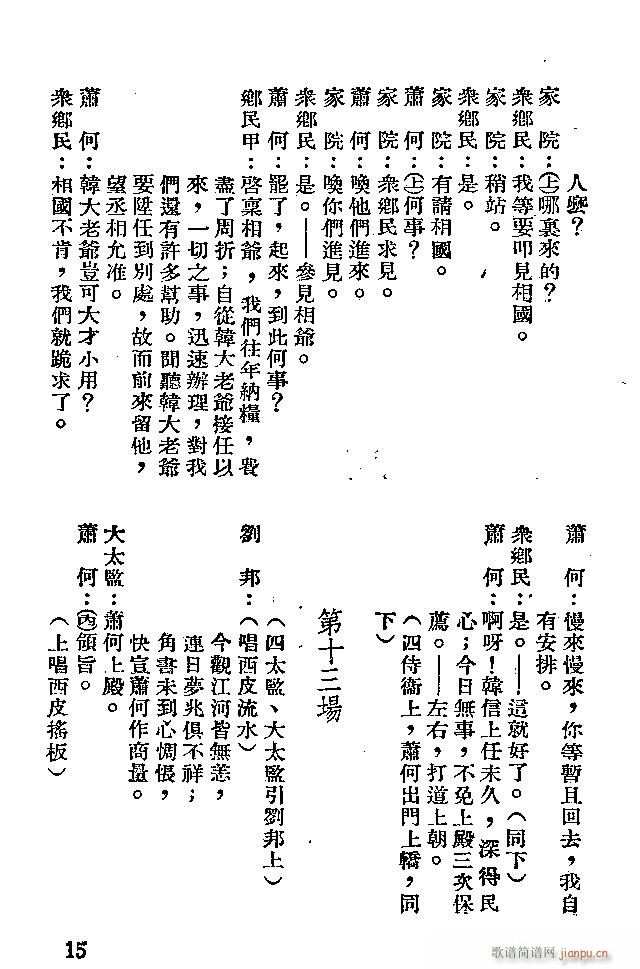 人麼？
家　院：㊤哪裏來的？
衆鄉民：我等要叩見相國。
家　院：稍站。
衆鄉民：是。
家　院：有請相國。
蕭　何：㊤何事？
家　院：衆鄉民求見。
蕭　何：喚他們進來。
家　院：喚你們進見。
衆鄉民：是。——參見相爺。
蕭　何：罷了，起來，到此何事？
鄉民甲：啓稟相爺，我們往年納糧，費
盡了周折；自從韓大老爺接任以
來，一切之事，迅速辦理，對我
們還有許多幫助。聞聽韓大老爺
要陞任到別處，故而前來留他，
望丞相允准。
蕭　何：韓大老爺豈可大才小用？
衆鄉民：相國不肯，我們就跪求了。
蕭　何：慢來慢來，你等暫且回去，我自
有安排。
衆鄉民：是。——這就好了。（同下）
蕭　何：啊呀！韓信上任未久，深得民
心；今日無事，不免上殿三次保
薦。——左右，打道上朝。
（四侍衞上，蕭何出門上轎，同
下）
第十三場
（四太監、大太監引劉邦上）
劉　邦：（唱西皮流水）
今觀江河皆無恙，
連日夢兆俱不祥；
角書未到心惆悵，
快宣蕭何作商量。
大太監：蕭何上殿。
蕭　何：㊄領旨。
（上唱西皮搖板）
15
歌谱简谱网
jianpu.cn